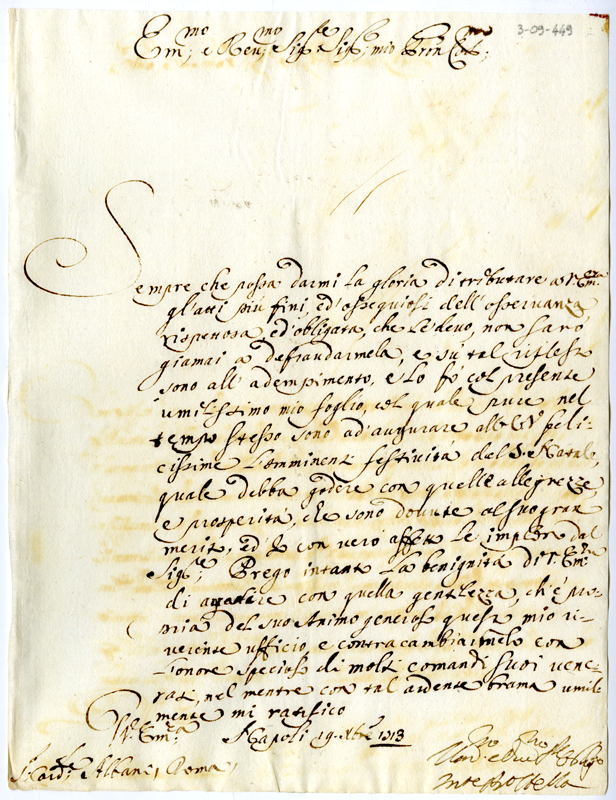 3-09-449
Em.mo e Rev.mo Sig.re Sig.re mio Pron Col.mo
Sempre che possa darmi la gloria di tributare a V. Em.za
gl'atti più fini, ed'ossequiosi dell'osservanza
rispettosa, ed'obligata, che le devo, non sarò
giamai a defraudarmela, e sù tal riflesso
sono all'adempimento, e lo fò col presente
umilissimo mio foglio, col quale pure nel
tempo stesso sono ad'augurare all'E.V. feli-
cissime l'imminenti festività del S. Natale,
quale debba godere con quelle allegrezze,
e prosperità, che sono dovute al suo gran
merito, ed io con vero affetto le imploro dal
Sig.re; Prego intanto la benignità di V. Em.za
di aggradire con quella gentilezza, ch'è pro-
pria del suo Animo generoso questo mio ri-
verente ufficio, e contracambiarmelo con
l'onore specioso di molti comandi suoi vene-
rati, nel mentre con tal ardente brama umil-
mente mi ratifico
V. Em.za
Napoli 19 Xbre 1713
S. Card.le Albani, Roma